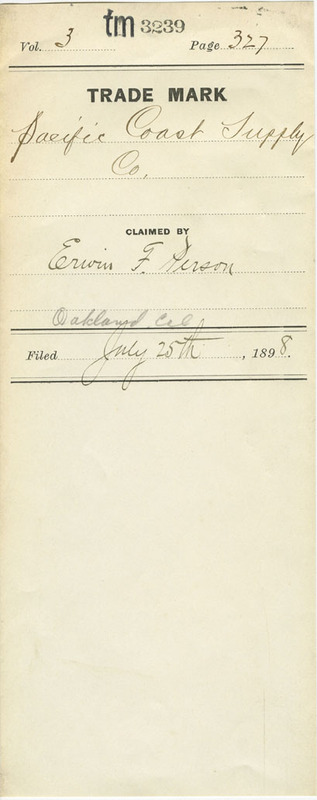 tm 3239
Vol. 3 Page 327
TRADE MARK
Pacific Coast Supply
Co.
CLAIMED BY
Erwin F. Person
Oakland, Cal
Filed July 25th, 1898.